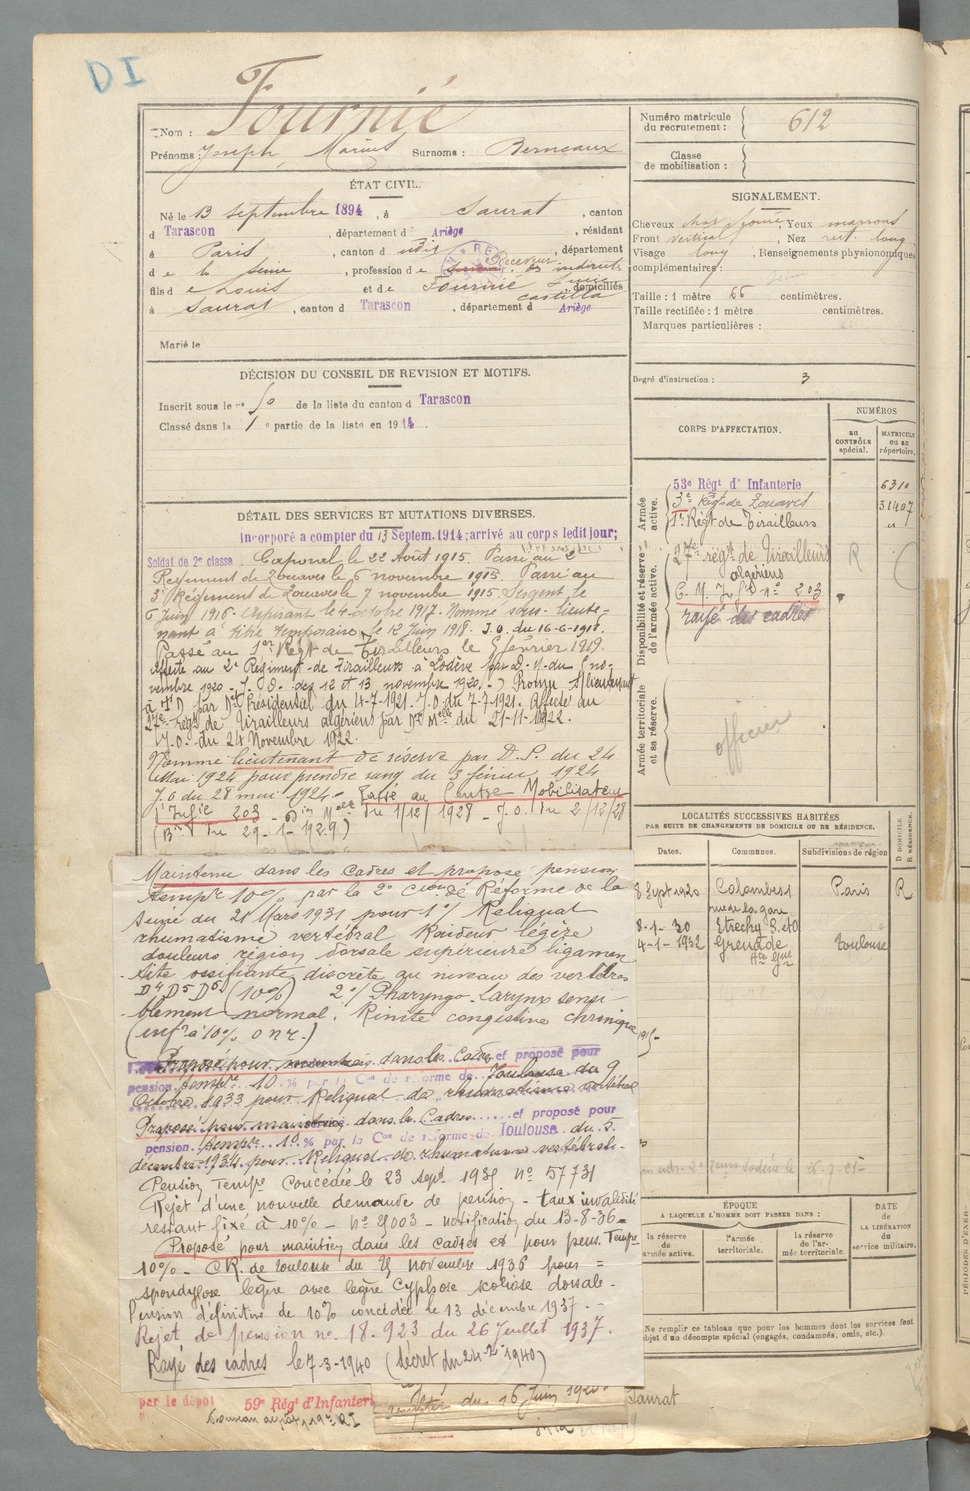 DI
Nom : Fournié
Prénoms : Joseph, Marius Surnoms : Berneaux
ÉTAT CIVIL.
Né le 13 septembre 1894, à Saurat, canton
d Tarascon, département d Ariège, résidant
à Paris, canton d udis, département
d e la Seine, profession d e Receveur des indirects
fils d e Louis et d e Fournié Lucie Castilla domiciliés
à Saurat, canton d Tarascon, département d Ariège
Marié le
DÉCISION DU CONSEIL DE REVISION ET MOTIFS.
Inscrit sous le no 50 de la liste du canton d Tarascon
Classé dans la 1e partie de la liste en 1914.
DÉTAIL DES SERVICES ET MUTATIONS DIVERSES.
Incorporé a compter du 13 Septem. 1914; arrivé au corps ledit jour;
Soldat de 2e classe. Caporal le 22 Août 1915. Passé au 2e
Régiment de Zouaves le 6 novembre 1915. Passé au
3e Régiment de Zouaves le 7 novembre 1915. Sergent le
6 Juin 1916. Aspirant le 4 octobre 1917. Nommé sous-lieute-
nant à titre temporaire le 12 Juin 1918. J.O. du 16-6-1918.
Passé au 1er Régt de Tirailleurs le 5 février 1919.
Affecté au 2e Régiment de Tirailleurs à Lodève par D. M. du 5 no-
vembre 1920 - J. O. des 12 et 13 novembre 1920. - Promu S/lieutenant
à T.D par Dt Présidentiel du 4-7-1921. J.O du 7-7-1921. Affecté au
27e régt de Tirailleurs algériens par Dn Melle du 21-11-1922.
J.O. du 24 Novembre 1922.
Nommé lieutenant de réserve par D. P. du 24
Mai 1924 pour prendre rang du 3 février 1924
J.O du 28 mai 1924 - Passé au Centre Mobilisateur
d'Infie 203 - Don Melle du 1/12/1928 - J.O. du 2/12/28
(Bin du 29-1-1929)
Maintenu dans les cadres et proposé pension
tempre 10% par la 2e Cion de Réforme de la
Seine du 21 Mars 1931 pour 1°/ Reliquat
rhumatisme vertébral Raideur légère
douleurs région dorsale supérieure ligamen
tite ossifiante discrète au niveau des vertèbres
D4 D5 D6 (10%) 2°/ Pharyngo-Larynx sensi
blement normal. Rinite congestive chronique
(infr à 10% o n r.)
Proposé pour maintien dans les Cadres et proposé pour
pension tempre 10 % par la Con de réforme de Toulouse du 9
Octobre 1933 pour Reliquat de rhumatisme vertébral
Proposé pour maintien dans les Cadres et proposé pour
pension tempre 10 % par la Con de réforme de Toulouse du 5
décembre 1934 pour Reliquat de rhumatisme vertébral.
Pension Tempre Concédée le 23 sept 1935 No 57731
Rejet d'une nouvelle demande de pension - taux invalidité
restant fixé à 10% - No 9003 - notification du 13-8-36 =
Proposé pour maintien dans les cadres et pour pens. Tempre
10% - CR. de Toulouse du 25 novembre 1936 pour =
spondylose légère avec légère Cyphose scoliose dorsale -
Pension définitive de 10% concédée le 13 décembre 1937. -
Rejet de pension no. 18.923 du 26 Juillet 1937.
Rayé des cadres le 7-3-1940 (décret du 24-2-1940)
par le dépôt 59e Régt d'Infanterie
du 16 Juin 1920 Saurat
Numéro matricule du recrutement : 612
Classe de mobilisation :
SIGNALEMENT.
Cheveux chat foncé, Yeux marrons
Front vertical, Nez rect. long
Visage long, Renseignements physionomiques
complémentaires :
Taille : 1 mètre 66 centimètres.
Taille rectifiée : 1 mètre centimètres.
Marques particulières :
Degré d'instruction : 3
CORPS D'AFFECTATION.
NUMÉROS
au CONTRÔLE spécial.
MATRICULE ou au répertoire.
Armée active.
53e Régt d'Infanterie 6310
3e Régt de Zouaves 31407
1er Régt de Tirailleurs "
Disponibilité et réserve de l'armée active.
27e régt de Tirailleurs algériens R
C. M. Infie No 203
rayé des cadres
Armée territoriale et sa réserve.
officier
LOCALITÉS SUCCESSIVES HABITÉES
PAR SUITE DE CHANGEMENTS DE DOMICILE OU DE RÉSIDENCE.
Dates. Communes. Subdivisions de région D DOMICILE. R RÉSIDENCE.
8 Sept 1920 Colombes Paris R
rue de la gare
8-1-30 Etrechy S. et O
4-1-1932 Grenade Toulouse
Hte Gne
ÉPOQUE
A LAQUELLE L'HOMME DOIT PASSER DANS :
la réserve de l'armée active.
l'armée territoriale.
la réserve de l'armée territoriale.
DATE de LA LIBÉRATION du service militaire.
Ne remplir ce tableau que pour les hommes dont les services font
objet d'un décompte spécial (engagés, condamnés, omis, etc.).